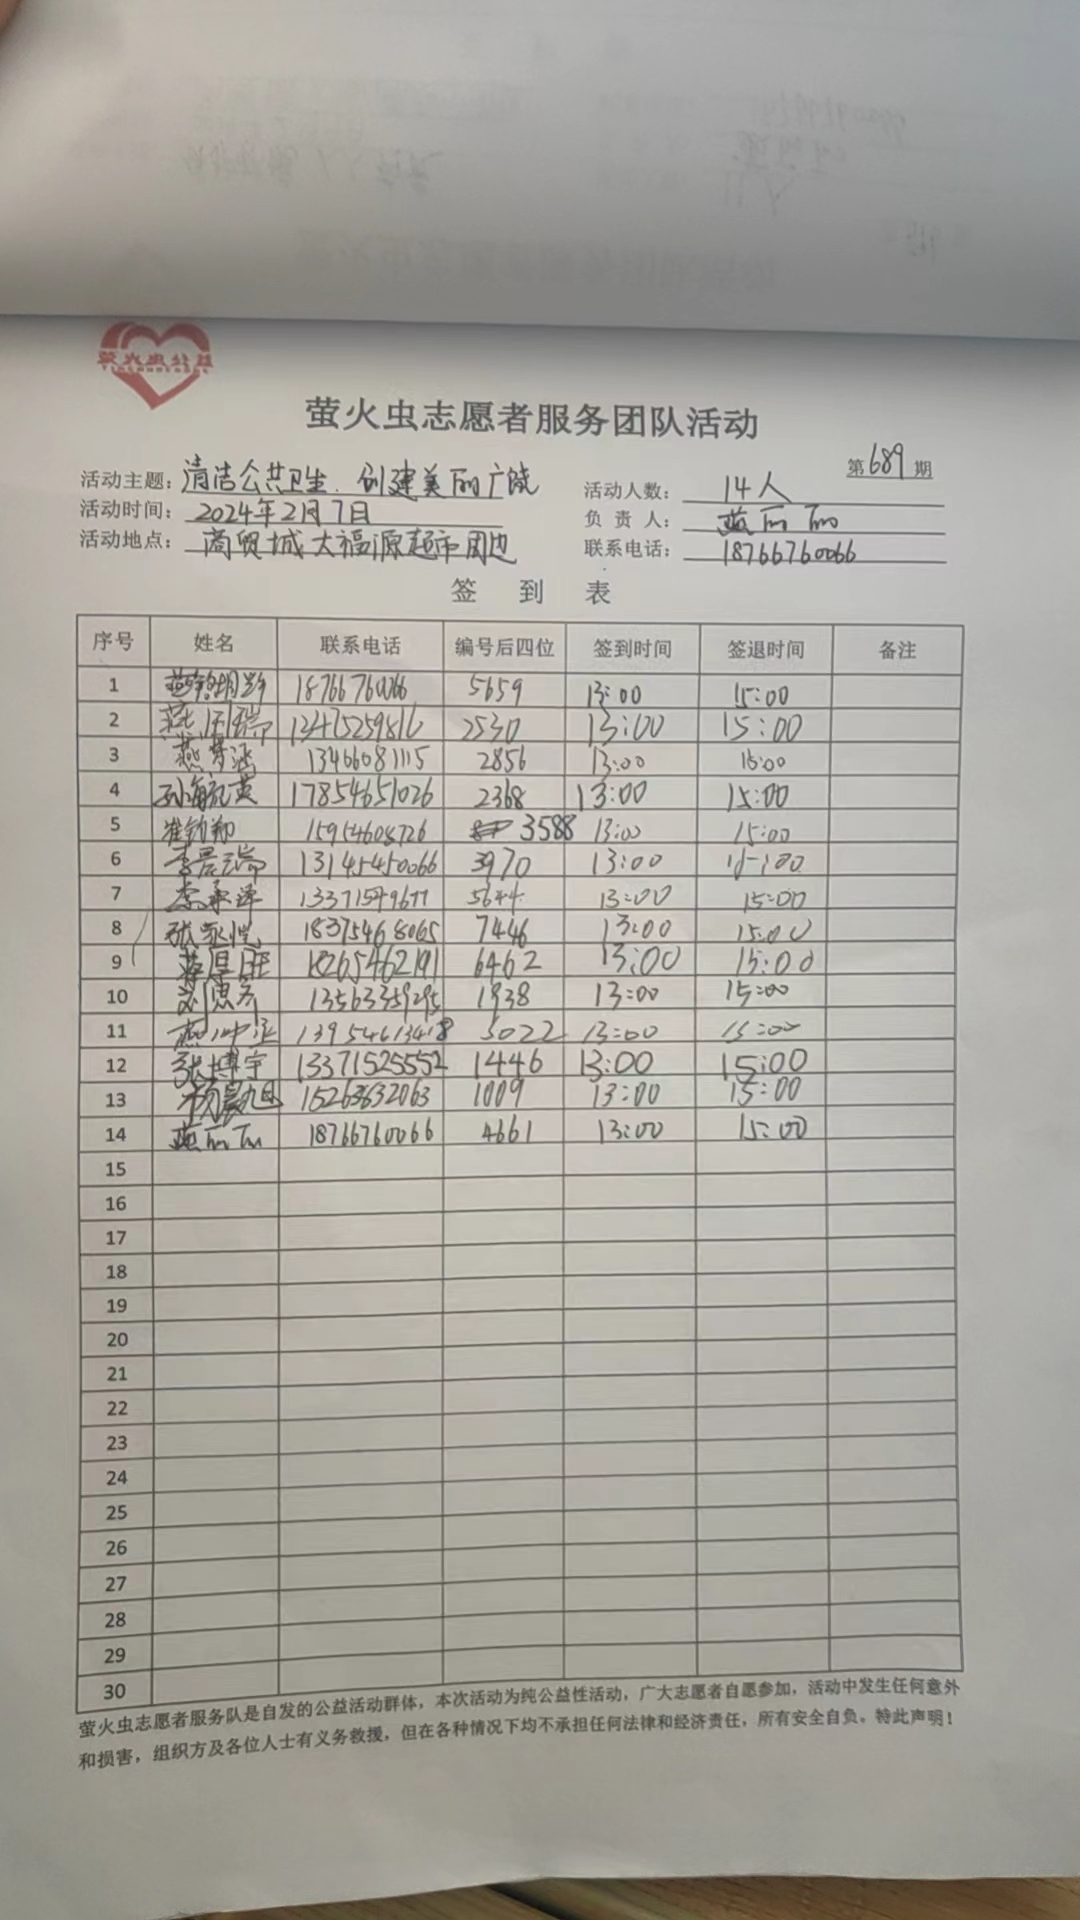 萤火虫公益
萤火虫志愿者服务团队活动
第689期
活动主题：清洁公共卫生、创建美丽广饶 活动人数：14人
活动时间：2024年2月7日 负责人：
活动地点：商贸城大福源超市周边 联系电话：18766760066
签到表
序号 姓名 联系电话 编号后四位 签到时间 签退时间 备注
1 18766760066 5659 13:00 15:00
2 13475259816 2530 13:00 15:00
3 燕梦涵 13406081115 2856 13:00 15:00
4 17854651026 2368 13:00 15:00
5 崔钧翔 15954608726 3588 13:00 15:00
6 李晨瑞 13145450066 3970 13:00 15:00
7 李承泽 5644 13:00 15:00
8 张家悦 18375468065 7446 13:00 15:00
9 18265462191 6462 13:00 15:00
10 13563359295 1938 13:00 15:00
11 13954613418 5022 13:00 15:00
12 张博宇 13371525552 1446 13:00 15:00
13 杨晨旭 15263632063 1009 13:00 15:00
14 18766760066 4661 13:00 15:00
15
16
17
18
19
20
21
22
23
24
25
26
27
28
29
30
萤火虫志愿者服务队是自发的公益活动群体，本次活动为纯公益性活动，广大志愿者自愿参加，活动中发生任何意外
和损害，组织方及各位人士有义务救援，但在各种情况下均不承担任何法律和经济责任，所有安全自负。特此声明！